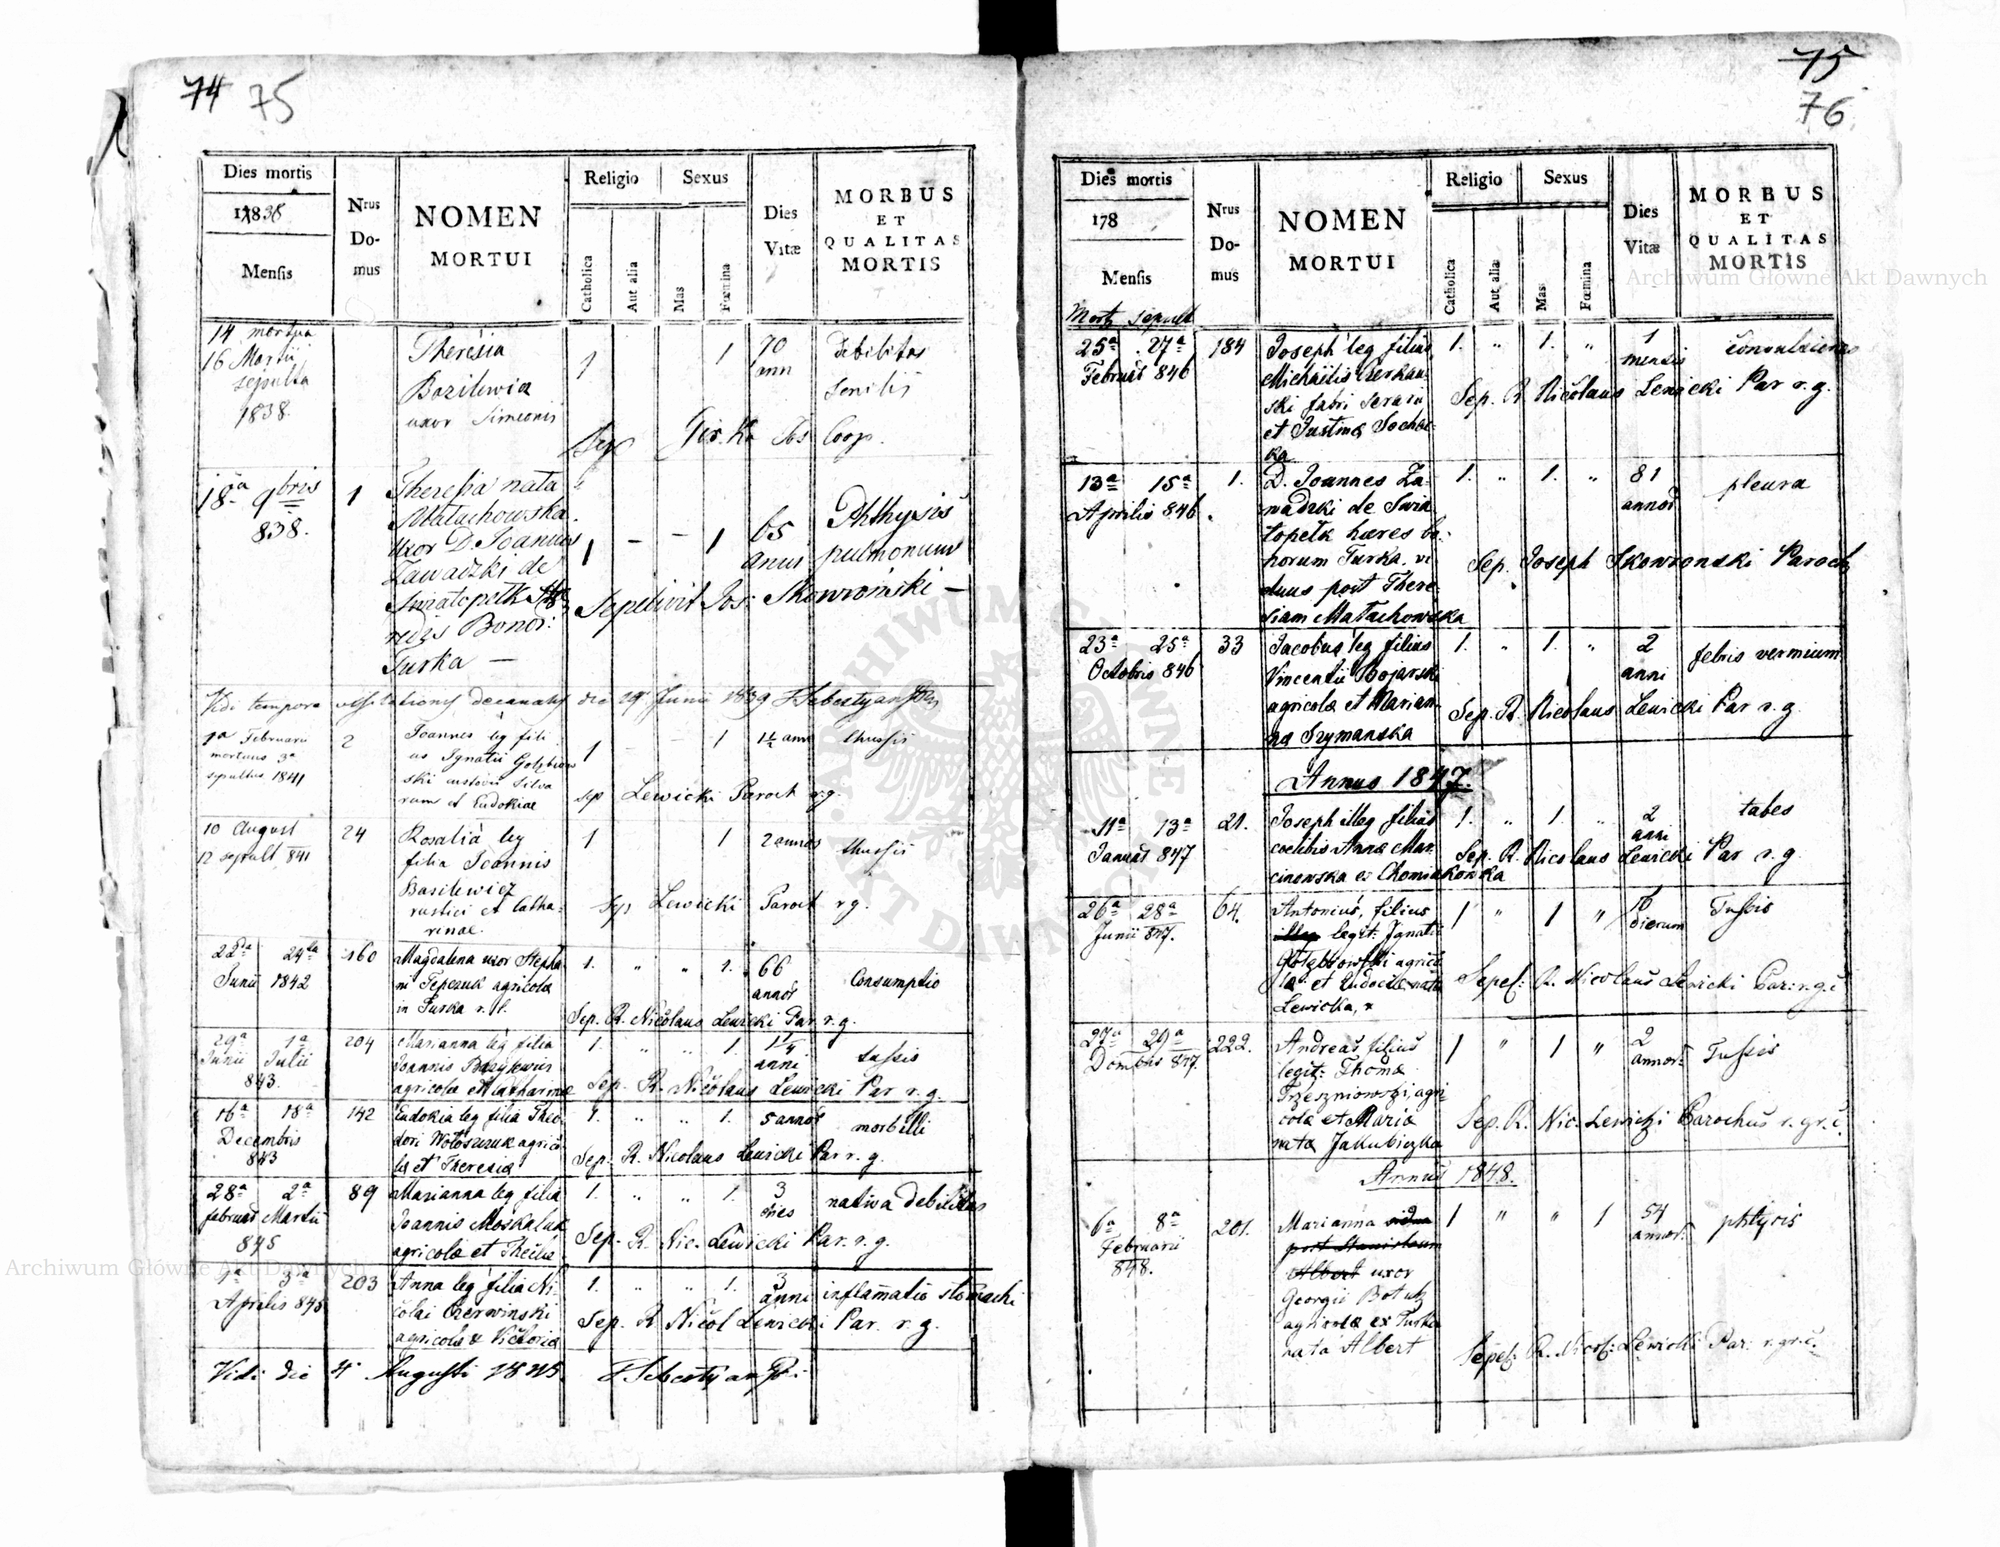 74 75
Dies mortis
1838
Mensis
Nrus
Do-
mus
NOMEN
MORTUI
Religio
Catholica
Aut alia
Sexus
Mas
Fœmina
Dies
Vitæ
MORBUS
ET
QUALITAS
MORTIS
14 mortua
16 Martii
sepulta
1838.
Theresia
Bazilewicz
uxor Simeonis
1
1
70
ann
debilitas
senilis
Sep
Coop.
18a 9bris
838.
1
Theresia nata
Małachowska
uxor D. Joannis
Zawadzki de
Swiatopełk
Bonor:
Turka —
1 — — 1
65
anni
Phthysis
pulmonum
Sepelivit Jos: Skowroński —
Vidi tempore visitationis decanalis die 29 Junii 1839
1a Februarii
mortuus 3a
sepultus 1841
2
Joannes leg fili
us Ignatii Gołębiow
ski custodis silva
rum et Eudokiae
1
1
1½ ann
thussis
sep Lewicki Paroch r.g.
10 August
12 sepult 841
24
Rosalia leg
filia Joannis
Basilewicz
rustici et Catha-
rinae
1
1
2 annos
thussis
Sep Lewicki Paroch r g.
22da 24ta
Junii 1842
160
Magdalena uxor Stepha
ni Tepczuk agricolæ
in Turka r. l.
1. " " 1.
66
annor
Consumptio
Sep. R. Nicolaus Lewicki Par r. g.
29a 1a
Junii Julii
843.
204
Marianna leg filia
Joannis Bazylewicz
agricolæ et Catharinæ
1. " " 1.
1¼
anni
tussis
Sep. R. Nicolaus Lewicki Par r. g.
16a 18a
Decembris
843
142
Eudokia leg filia Theo
dori Wołoszczuk agrico
læ et Theresiæ
1. " " 1.
5 annor
morbilli
Sep. R. Nicolaus Lewicki Par r. g.
28a 2a
februar Martii
845
89
Marianna leg filia
Joannis Moskaluk
agricolæ et Theclæ
1. " " 1.
3
dies
nativa debilitas
Sep. R. Nic. Lewicki Par. r. g.
1a 3a
Aprilis 845
203
Anna leg filia Ni
colai Czerwinski
agricolæ & Victoriæ
1. " " 1.
3
anni
inflamatio stomachi
Sep. R Nicol Lewicki Par. r. g.
Vidi die 4 Augusti 1845.
75
76
Dies mortis
178
Mensis
Nrus
Do-
mus
NOMEN
MORTUI
Religio
Catholica
Aut alia
Sexus
Mas
Fœmina
Dies
Vitæ
MORBUS
ET
QUALITAS
MORTIS
Mort sepult
25a 27a
Februar 846
184
Joseph leg filius
Michaelis Czerkaw-
ski fabri
et Justinæ Sochac-
ka
1. " 1. "
1
mensis
convulsiones
Sep. R Nicolaus Lewicki Par r. g.
13a 15a
Aprilis 846.
1.
D. Joannes Za-
wadzki de Swia
topełk hæres bo-
norum Turka, vi
duus post There-
siam Małachowska
1. " 1. "
81
annor
pleura
Sep. Joseph Skowronski Paroch
23a 25a
Octobris 846
33
Jacobus leg filius
Vincentii Bojarski
agricolæ et Marian-
næ Szymanska
1. " 1. "
2
anni
febris vermium
Sep. R. Nicolaus Lewicki Par r. g.
Annus 1847.
11a 13a
Januar 847
21.
Joseph illeg filius
coelibis Annæ Mar
cinowska ex Chomiakowka
1. " 1. "
2
anni
tabes
Sep. R. Nicolaus Lewicki Par r. g.
26a 28a
Junii 847.
64.
Antonius, filius
illeg legit: Ignatii
Gołębiowski agrico
læ et Eudociæ nata
Lewicka,
1 " 1 "
16
dierum
Tussis
Sepel: R. Nicolaus Lewicki Par: r. g. c
27a 29a
Dcembris 847.
222.
Andreas filius
legit: Thomæ
Trzeszniowszi, agri
colæ et Mariæ
nata Jakubiczka
1 " 1 "
2
annor:
Tussis
Sep. R. Nic. Lewicki Parochus r. gr. c.
Annus 1848.
6a 8a
Februarii
848.
201.
Marianna vidua
post Stanislaum
Albert uxor
Georgii
agricolæ ex Turka
nata Albert
1 " " 1
54
annor:
phtysis
Sepel: R. Nicol: Lewicki Par: r. gr. c.
Archiwum Główne Akt Dawnych
Archiwum Główne Akt Dawnych
ARCHIWUM GŁÓWNE AKT DAWNYCH